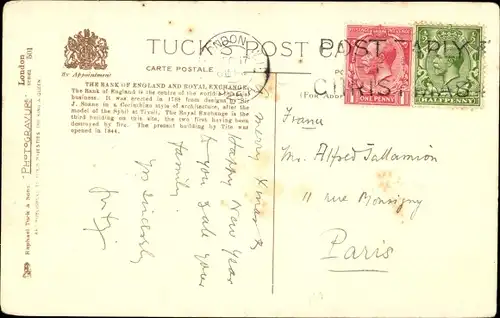 TUCK'S POST CARD
CARTE POSTALE
By Appointment
THE BANK OF ENGLAND AND ROYAL EXCHANGE.
The Bank of England is the centre of the world's
business. It was erected in 1788 from designs by Sir
J. Soane in a Corinthian style of architecture, after the
model of the Sybil at Tivoli. The Royal Exchange is the
third building on this site, the two first having been
destroyed by fire. The present building by Tite was
opened in 1844.
Raphael Tuck & Sons "PHOTOGRAVURE" London
POST EARLY
CHRISTMAS
ONE PENNY
HALFPENNY
(For
France
Mr. Alfred Tallamion
11 rue Monsigny
Paris
merry Xmas &
Happy New Year
to you &
family.
yrs sincerely